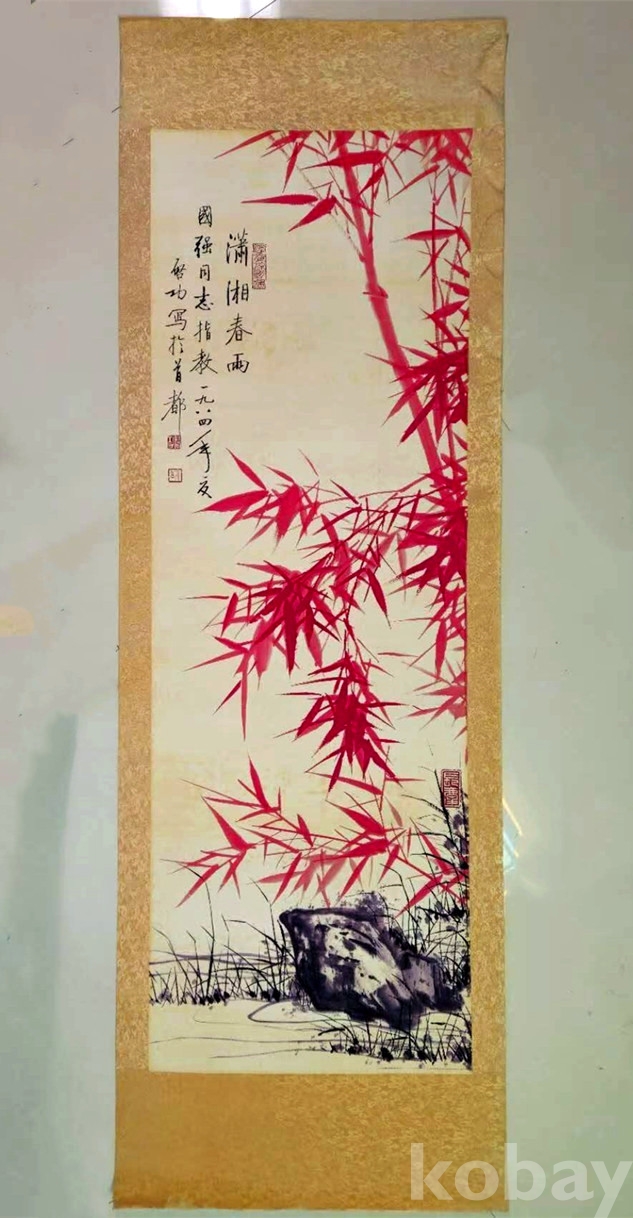 瀟湘春雨
國强同志指教一九八四年夏
啓功寫於首都
kobay